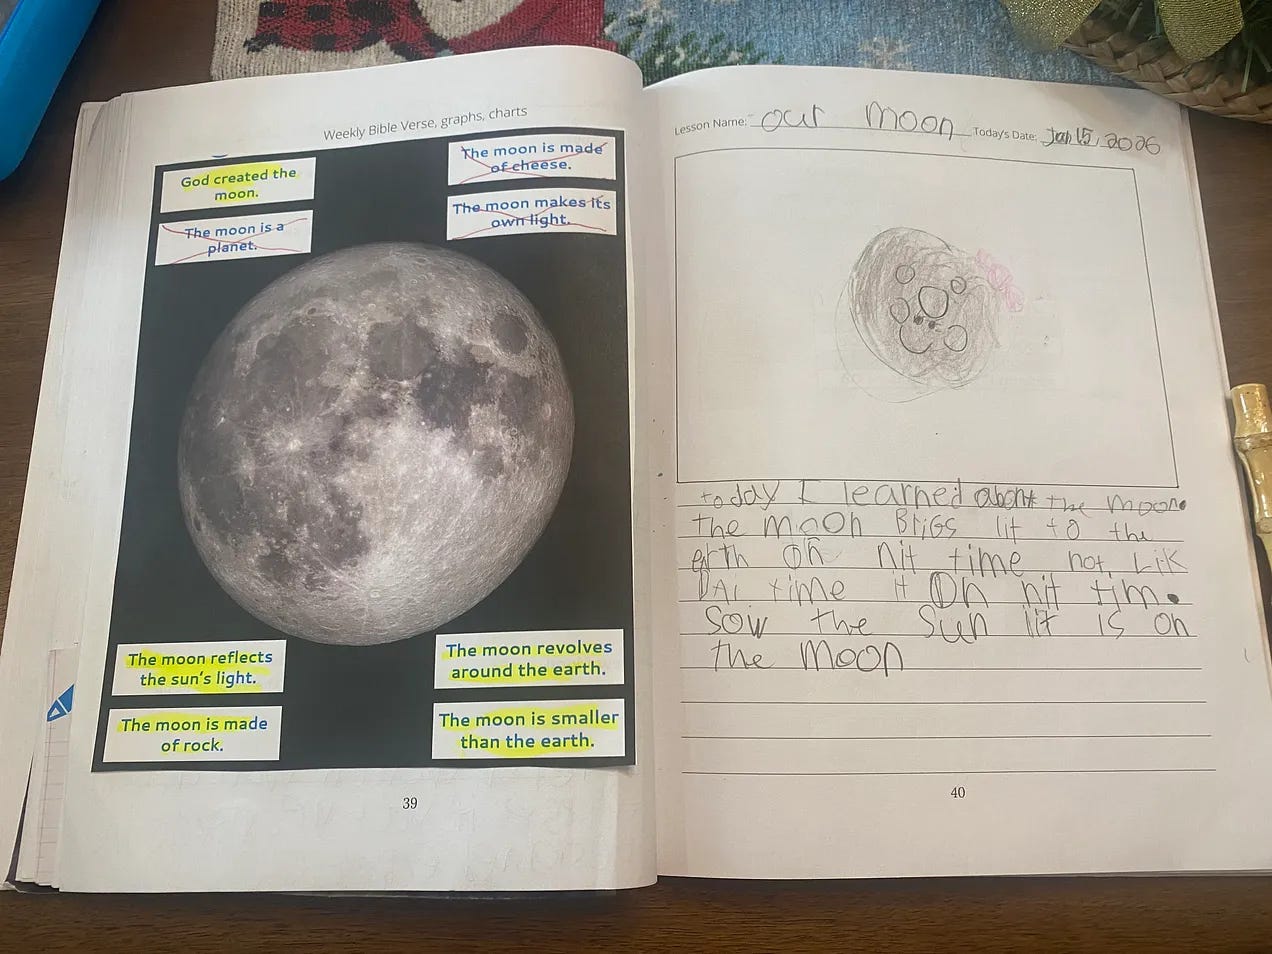 Weekly Bible Verse, graphs, charts
God created the
moon.
The moon is a
planet.
The moon is made
of cheese.
The moon makes its
own light.
The moon reflects
the sun's light.
The moon is made
of rock.
The moon revolves
around the earth.
The moon is smaller
than the earth.
39
Lesson Name: our moon Today's Date: Jan 15, 2026
today I learned about the moon.
the moon Brigs lit to the
erth on nit time not Lik
DAi time it On nit tim.
Sow the Sun lit is on
the moon
40